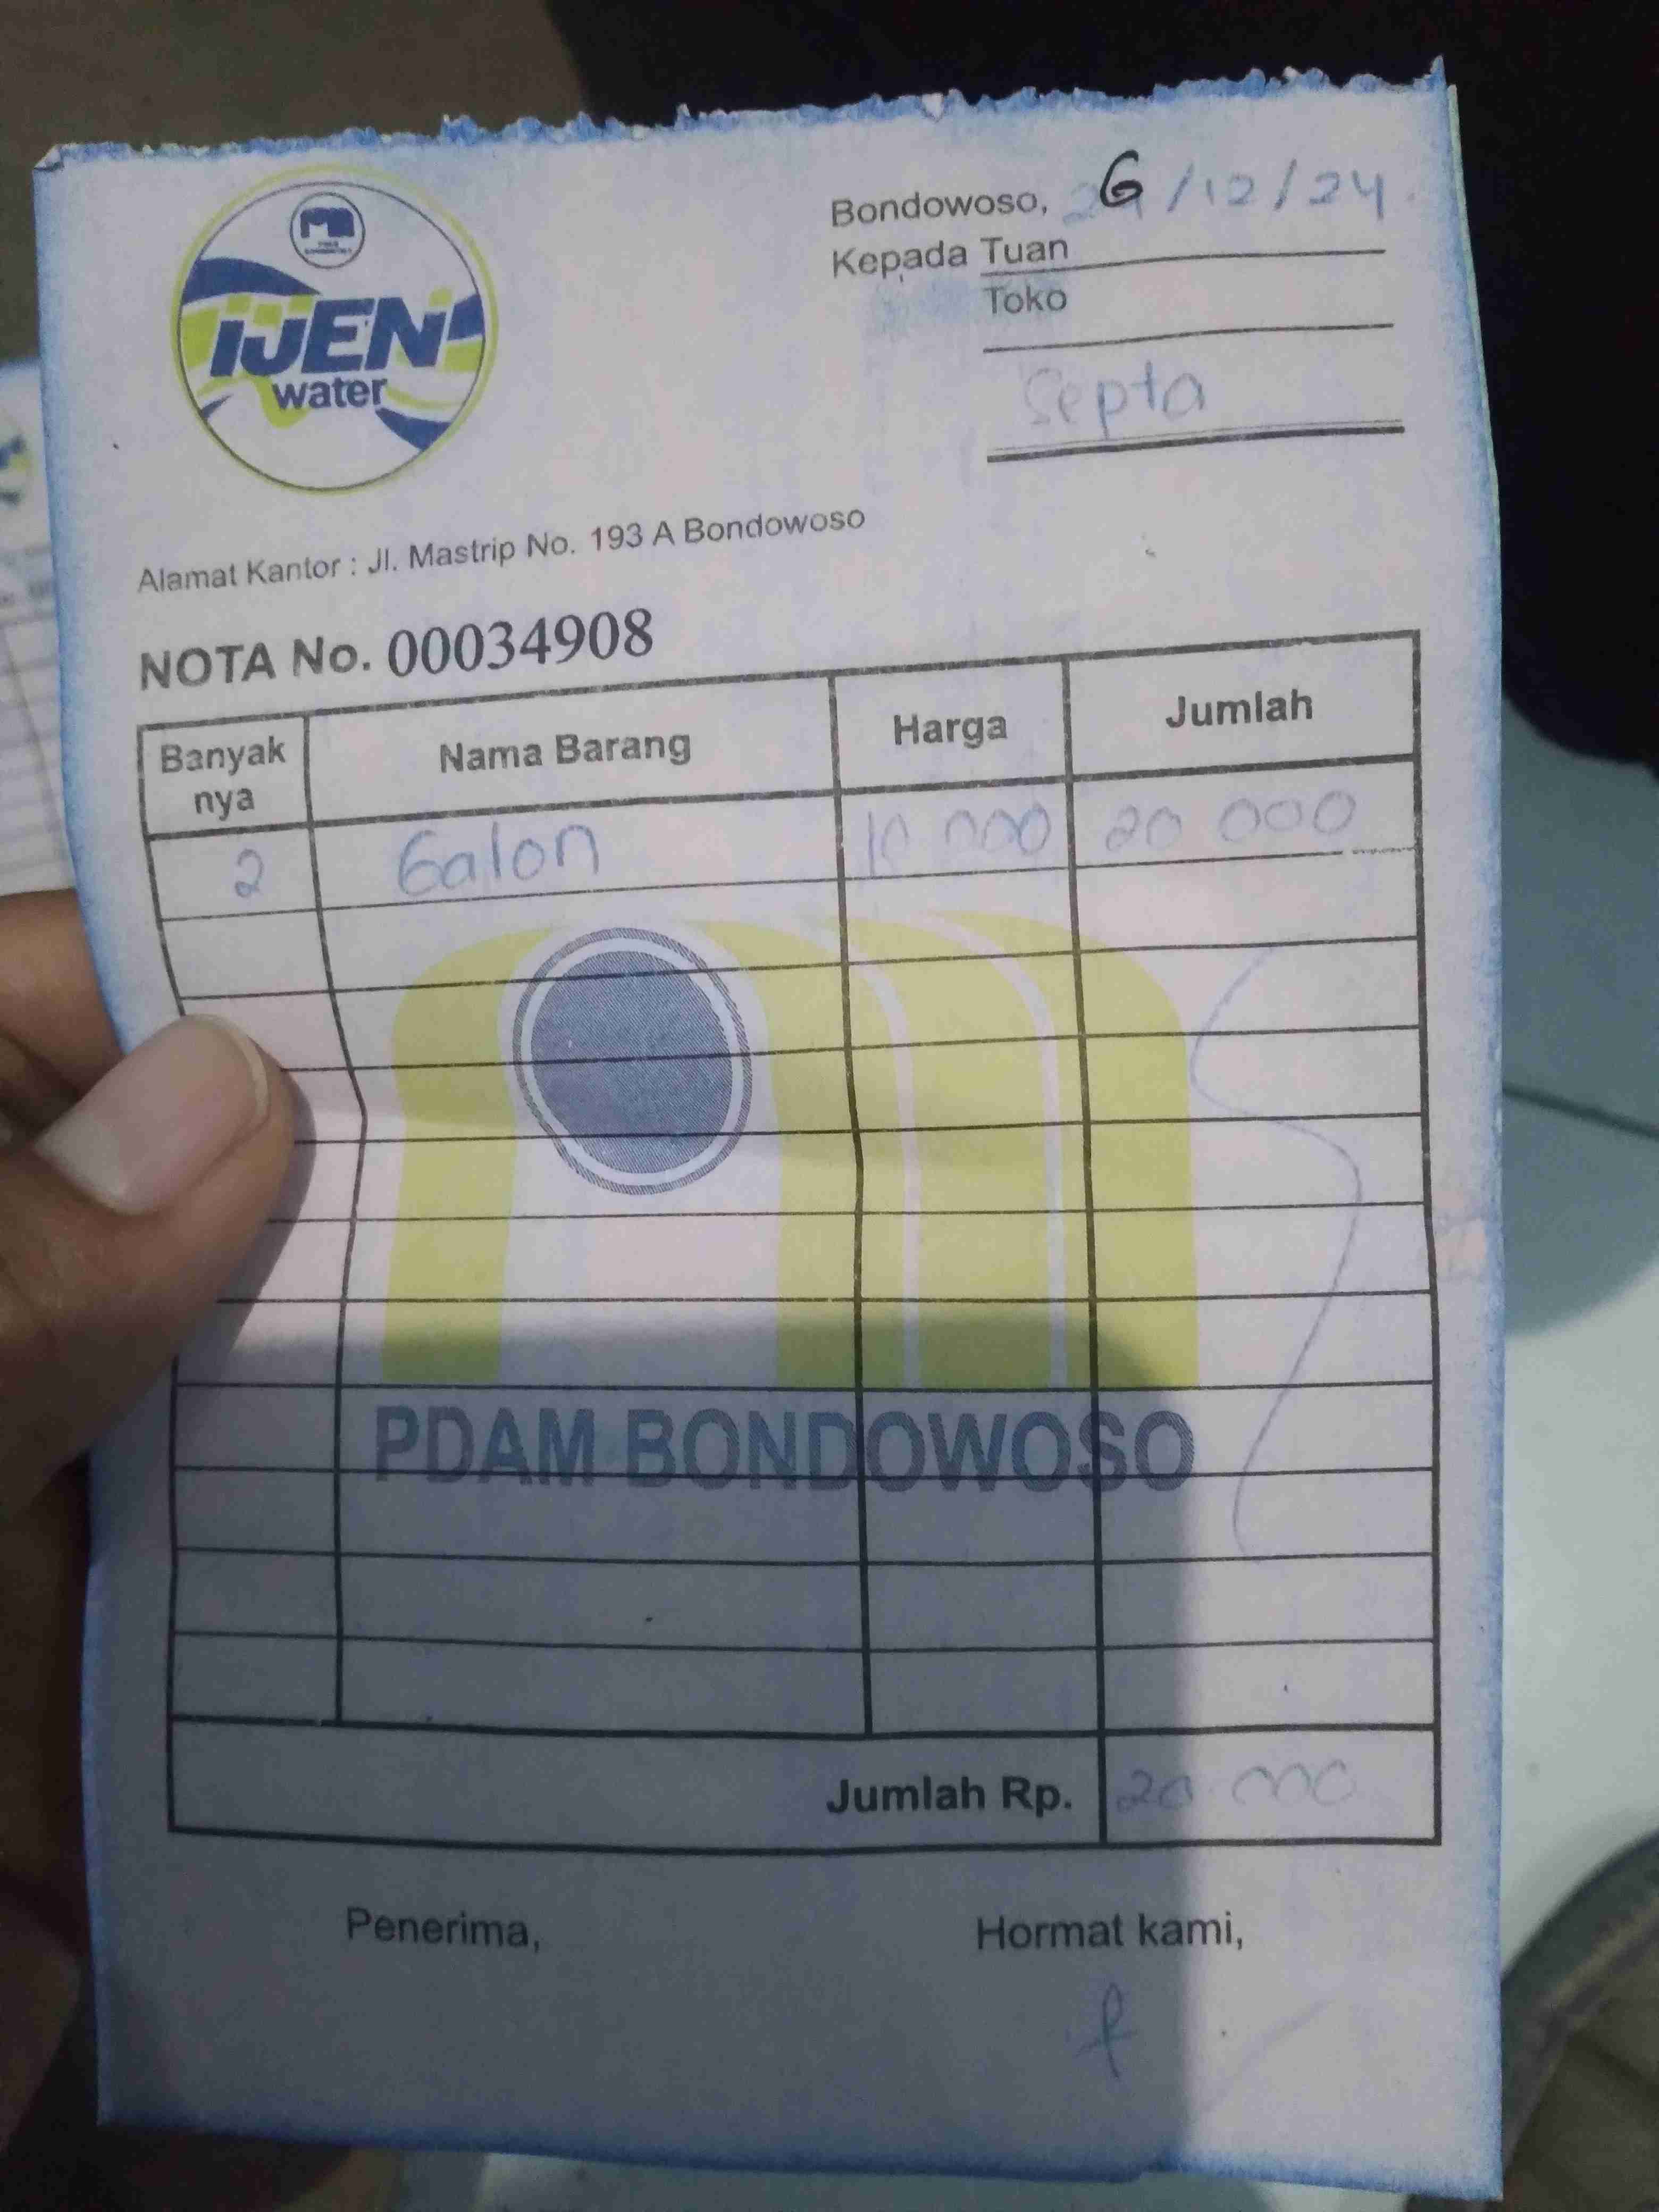 IJEN
water
Bondowoso, 6/12/24
Kepada Tuan
Toko
Septa
Alamat Kantor : Jl. Mastrip No. 193 A Bondowoso
NOTA No. 00034908
Banyak nya Nama Barang Harga Jumlah
2 Galon 10 000 20 000
PDAM BONDOWOSO
Jumlah Rp. 20 000
Penerima, Hormat kami,